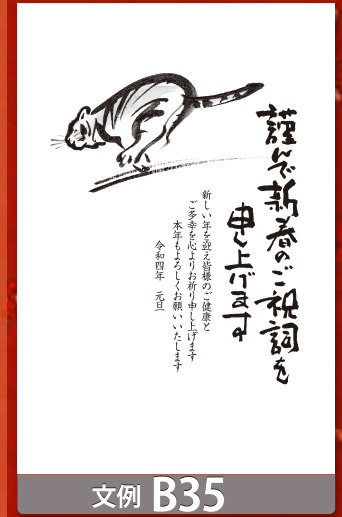 謹んで新春のご祝詞を
申し上げます
新しい年を迎え皆様のご健康と
ご多幸を心よりお祈り申し上げます
本年もよろしくお願いいたします
令和四年　元旦
文例 B35